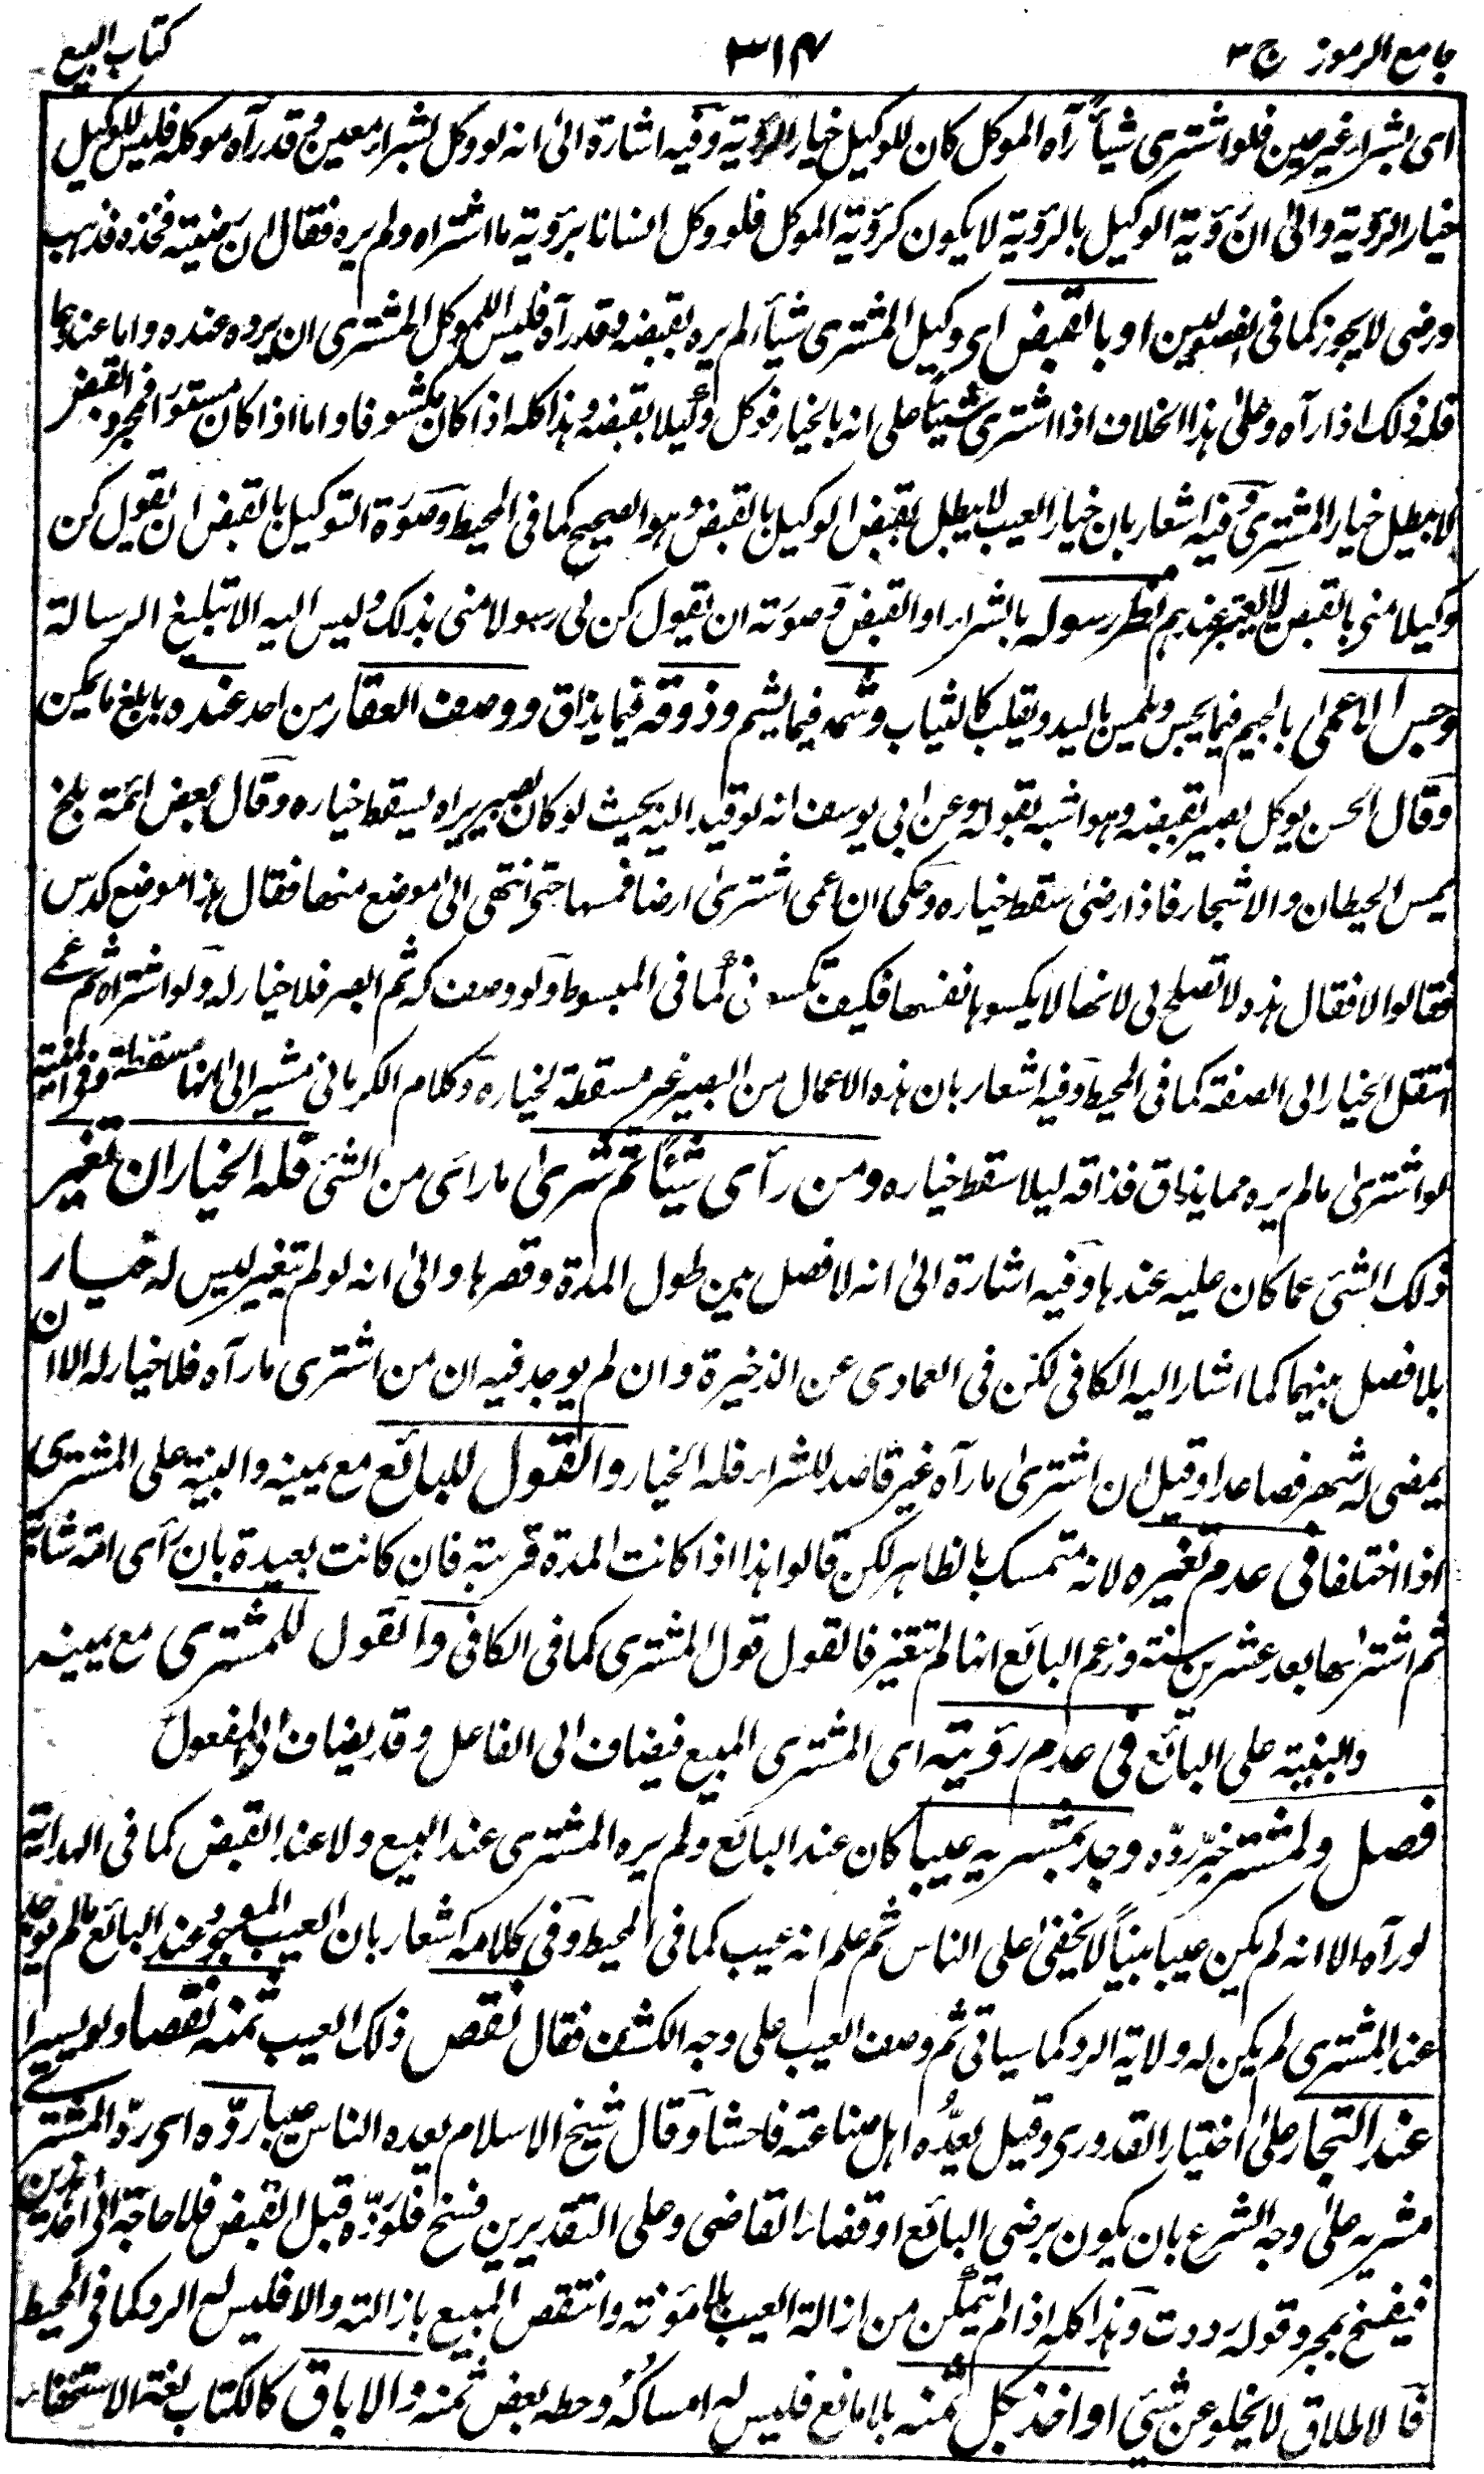 جامع الرموز ج ٣
٣١٤
كتاب البيع
اى بشراء غير معين فلو اشترى شيأ رآه الموكل كان للوكيل خيار الرؤية وفيه اشارة الى انه لو وكل بشراء معين وقد رآه موكله فليس للوكيل
خيار الرؤية والى ان رؤية الوكيل بالرؤية لا يكون كرؤية الموكل فلو وكل انسانا برؤية ما اشتراه ولم يره فقال ان رضيته فخذه فذهب
ورضى لا يجوز كما فى الفصولين او بالقبض اى وكيل المشترى شيأ لم يره بقبضه وقد رآه فليس للموكل المشترى ان يرده عنده واما عندهما
فله ذلك اذا رآه وعلى هذا الخلاف اذا اشترى شيئا على انه بالخيار فوكل وكيلا بقبضه وهذا كله اذا كان مكشوفا واما اذا كان مستورا فمجرد القبض
لا يبطل خيار المشترى وفيه اشعار بان خيار العيب لا يبطل بقبض الوكيل بالقبض وهو الصحيح كما فى المحيط وصورة التوكيل بالقبض ان يقول كن
وكيلا منى بالقبض لا يعتبر عندهم نظر رسوله بالشراء او القبض وصورته ان يقول كن لى رسولا منى بذلك وليس اليه الا تبليغ الرسالة
وجس الاعمى بالجيم فيما يجس ويلمس باليد ويقلب كالثياب وشمه فيما يشم وذوقه فيما يذاق ووصف العقار من احد عنده بابلغ ما يمكن
وقال الحسن يوكل بصيرا بقبضه وهو اشبه بقوله وعن ابى يوسف انه لو قيد اليه بحيث لو كان بصيرا يراه يسقط خياره وقال بعض ائمة بلخ
يمس الحيطان والاشجار فاذا رضى سقط خياره وحكى ان اعمى اشترى ارضا فمسها حتى انتهى الى موضع منها فقال هذا موضع كدس
فقالوا لا فقال هذه لا تصلح لى لانها لا يكسو ها نفسها فكيف تكسونى كما فى المبسوط ولو وصف له ثم ابصر فلا خيار له ولو اشتراه ثم عمى
انتقل الخيار الى الصفة كما فى المحيط وفيه اشعار بان هذه الاعمال من البصير غير مسقطة لخياره وكلام الكرمانى مشير الى انها مسقطة وفى المنية
لو اشترى ما لم يره مما يذاق فذاقه ليلا سقط خياره ومن رأى شيئا ثم شرى ما رأى من الشئ فله الخيار ان تغير
ذلك الشئ عما كان عليه عندها وفيه اشارة الى انه لا فصل بين طول المدة وقصرها والى انه لو لم يتغير ليس له خيار
بلا فصل بينهما كما اشار اليه الكافى لكن فى العمادى عن الذخيرة وان لم يوجد فيه ان من اشترى ما رآه فلا خيار له الا ان
يمضى له شهر فصاعدا وقيل ان اشترى ما رآه غير قاصد للشراء فله الخيار والقول للبائع مع يمينه والبينة على المشترى
اذا اختلفا فى عدم تغيره لانه متمسك بالظاهر لكن قالوا هذا اذا كانت المدة قريبة فان كانت بعيدة بان رأى امة شابة
ثم اشتراها بعد عشرين سنة وزعم البائع انها لم تتغير فالقول قول المشترى كما فى الكافى والقول للمشترى مع يمينه
والبينة على البائع فى عدم رؤيته اى المشترى المبيع فيضاف الى الفاعل وقد يضاف الى المفعول
فصل ولمشتر خير رده وجد بمشريه عيبا كان عند البائع ولم يره المشترى عند البيع ولا عند القبض كما فى الهداية
لو رآه الا انه لم يكن عيبا بينا لا يخفى على الناس ثم علم انه عيب كما فى المحيط وفى كلامه اشعار بان العيب الموجود عند البائع ما لم يوجد
عند المشترى لم يكن له ولاية الرد كما سياتى ثم وصف العيب على وجه الكشف فقال نقص ذلك العيب ثمنه نقصا ولو يسيرا
عند التجار على اختيار القدورى وقيل يعده اهل صناعته فاحشا وقال شيخ الاسلام يعده الناس عيبا رده اى رد المشترى
مشريه على وجه الشرع بان يكون برضى البائع او قضاء القاضى وعلى التقديرين فسخ فلو رده قبل القبض فلا حاجة الى احد هذين
فيفسخ بمجرد قوله رددت وهذا كله اذا لم يتمكن من ازالة العيب بلا مؤنة وانتقص المبيع بازالته والا فليس له الرد كما فى المحيط
فالاطلاق لا يخلو عن شئ او اخذ بكل ثمنه بلا مانع فليس له امساكه وحطه بعض ثمنه والاباق كالكتاب لغة الاستخفاء